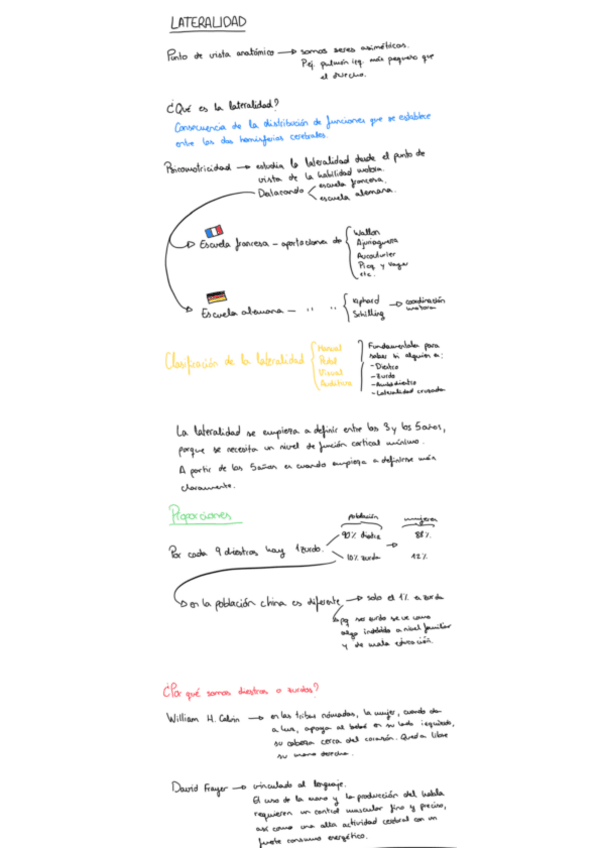 LATERALIDAD
Punto de vista anatómico → somos seres asimétricos.
Pej. pulmón izq. más pequeño que
el derecho.
¿Qué es la lateralidad?
Consecuencia de la distribución de funciones que se establece
entre los dos hemisferios cerebrales.
Psicomotricidad → estudia la lateralidad desde el punto de
vista de la habilidad motora.
Destacando < escuela francesa.
escuela alemana.
Escuela francesa - aportaciones de { Wallon
Ajuriaguerra
Aucouturier
Picq y Vayer
etc.
Escuela alemana - " " { Kiphard → coordinación
Schilling motora
Clasificación de la lateralidad { Manual
Pedal
Visual
Auditiva
Fundamentales para
saber si alguien es:
- Diestro
- Zurdo
- Ambidiestro
- Lateralidad cruzada
La lateralidad se empieza a definir entre los 3 y los 5 años,
porque se necesita un nivel de función cortical mínimo.
A partir de los 5 años es cuando empieza a definirse más
claramente.
Proporciones
población mujeres
90% diestra → 88%
Por cada 9 diestros hay 1 zurdo.
10% zurda 12%
en la población china es diferente → solo el 1% es zurda
pq ser zurdo se ve como
algo indebido a nivel familiar
y de mala educación.
¿Por qué somos diestros o zurdos?
William H. Calvin → en las tribus nómadas, la mujer, cuando da
a luz, apoya al bebé en su lado izquierdo,
su cabeza cerca del corazón. Queda libre
su mano derecha.
David Frayer → vinculado al lenguaje.
El uso de la mano y la producción del habla
requieren un control muscular fino y preciso,
así como una alta actividad cerebral con un
fuerte consumo energético.